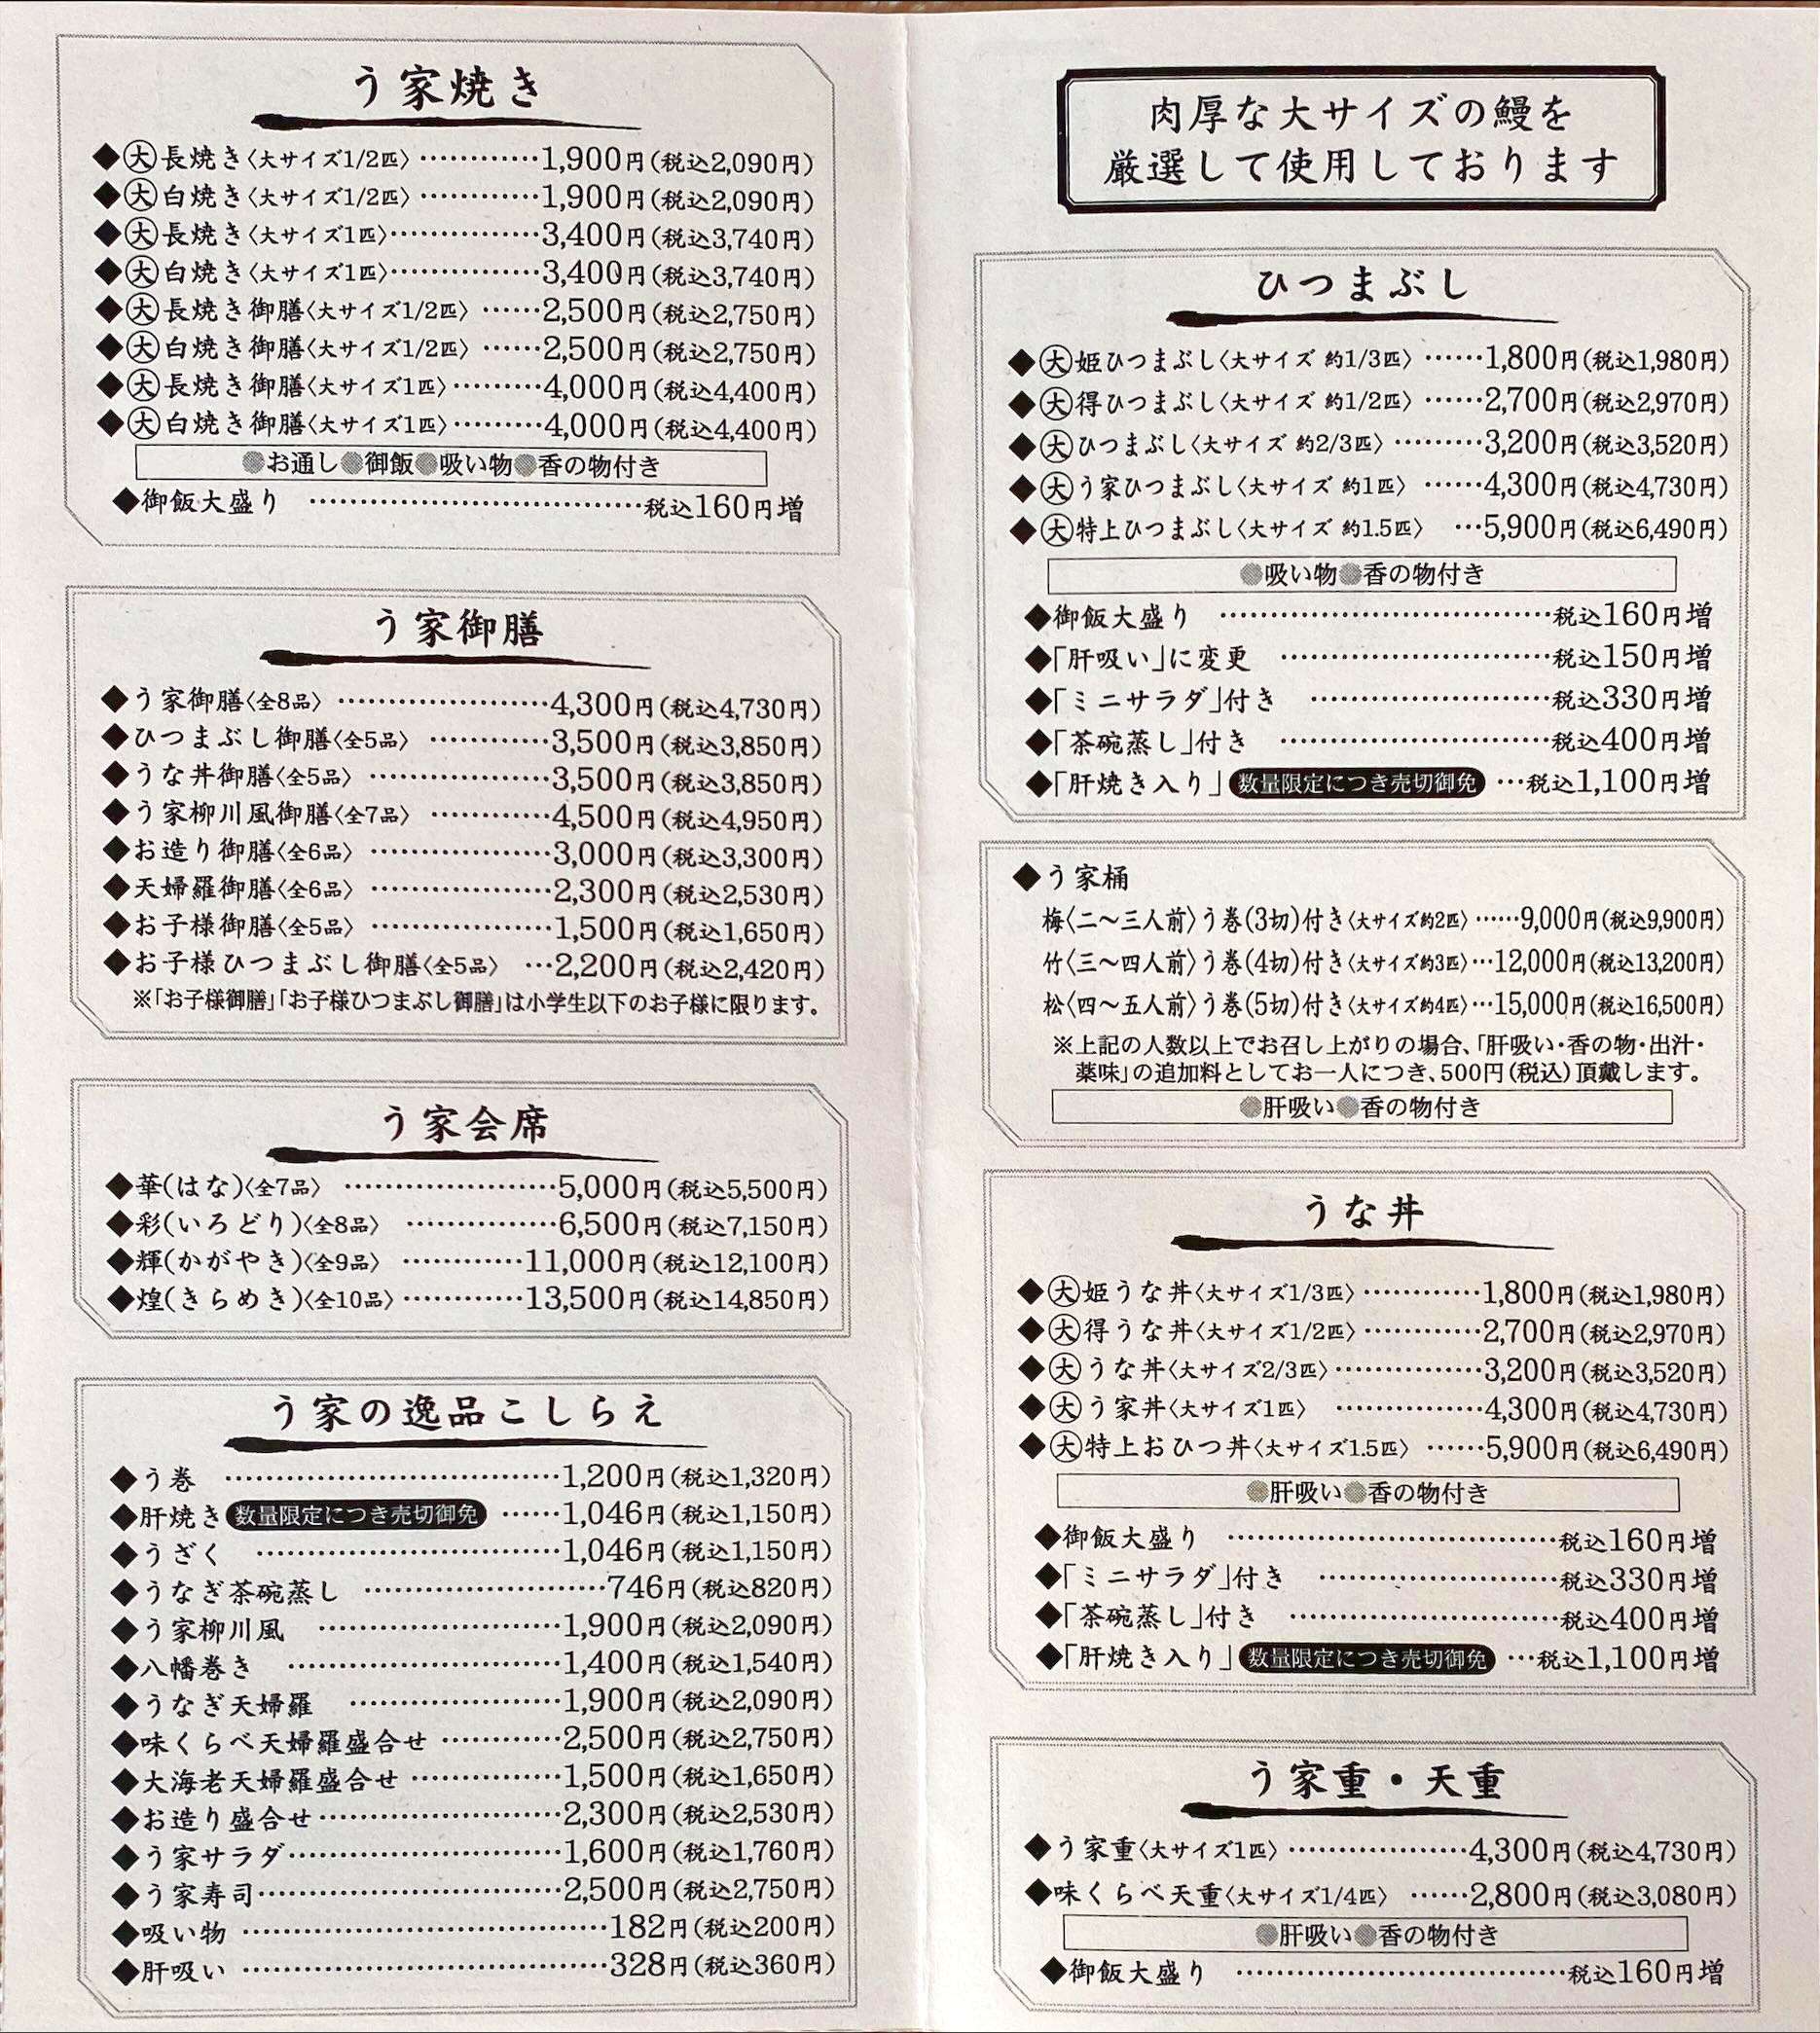 う家焼き
◆大長焼き〈大サイズ1/2匹〉…………1,900円(税込2,090円)
◆大白焼き〈大サイズ1/2匹〉…………1,900円(税込2,090円)
◆大長焼き〈大サイズ1匹〉……………3,400円(税込3,740円)
◆大白焼き〈大サイズ1匹〉……………3,400円(税込3,740円)
◆大長焼き御膳〈大サイズ1/2匹〉……2,500円(税込2,750円)
◆大白焼き御膳〈大サイズ1/2匹〉……2,500円(税込2,750円)
◆大長焼き御膳〈大サイズ1匹〉………4,000円(税込4,400円)
◆大白焼き御膳〈大サイズ1匹〉………4,000円(税込4,400円)
●お通し●御飯●吸い物●香の物付き
◆御飯大盛り ……………………………税込160円増
う家御膳
◆う家御膳〈全8品〉…………………4,300円(税込4,730円)
◆ひつまぶし御膳〈全5品〉…………3,500円(税込3,850円)
◆うな丼御膳〈全5品〉………………3,500円(税込3,850円)
◆う家柳川風御膳〈全7品〉…………4,500円(税込4,950円)
◆お造り御膳〈全6品〉………………3,000円(税込3,300円)
◆天婦羅御膳〈全6品〉………………2,300円(税込2,530円)
◆お子様御膳〈全5品〉………………1,500円(税込1,650円)
◆お子様ひつまぶし御膳〈全5品〉…2,200円(税込2,420円)
※「お子様御膳」「お子様ひつまぶし御膳」は小学生以下のお子様に限ります。
う家会席
◆華(はな)〈全7品〉…………………5,000円(税込5,500円)
◆彩(いろどり)〈全8品〉……………6,500円(税込7,150円)
◆輝(かがやき)〈全9品〉…………11,000円(税込12,100円)
◆煌(きらめき)〈全10品〉…………13,500円(税込14,850円)
う家の逸品こしらえ
◆う巻 ……………………………1,200円(税込1,320円)
◆肝焼き 数量限定につき売切御免 ……1,046円(税込1,150円)
◆うざく …………………………1,046円(税込1,150円)
◆うなぎ茶碗蒸し ……………………746円(税込820円)
◆う家柳川風 ……………………1,900円(税込2,090円)
◆八幡巻き ………………………1,400円(税込1,540円)
◆うなぎ天婦羅 …………………1,900円(税込2,090円)
◆味くらべ天婦羅盛合せ …………2,500円(税込2,750円)
◆大海老天婦羅盛合せ ……………1,500円(税込1,650円)
◆お造り盛合せ……………………2,300円(税込2,530円)
◆う家サラダ………………………1,600円(税込1,760円)
◆う家寿司…………………………2,500円(税込2,750円)
◆吸い物 ………………………………182円(税込200円)
◆肝吸い ………………………………328円(税込360円)
肉厚な大サイズの鰻を
厳選して使用しております
ひつまぶし
◆大姫ひつまぶし〈大サイズ 約1/3匹〉……1,800円(税込1,980円)
◆大得ひつまぶし〈大サイズ 約1/2匹〉……2,700円(税込2,970円)
◆大ひつまぶし〈大サイズ 約2/3匹〉………3,200円(税込3,520円)
◆大う家ひつまぶし〈大サイズ 約1匹〉……4,300円(税込4,730円)
◆大特上ひつまぶし〈大サイズ 約1.5匹〉…5,900円(税込6,490円)
●吸い物●香の物付き
◆御飯大盛り ……………………………税込160円増
◆「肝吸い」に変更 ………………………税込150円増
◆「ミニサラダ」付き ……………………税込330円増
◆「茶碗蒸し」付き ………………………税込400円増
◆「肝焼き入り」 数量限定につき売切御免 …税込1,100円増
◆う家桶
梅〈二〜三人前〉う巻(3切)付き〈大サイズ約2匹〉……9,000円(税込9,900円)
竹〈三〜四人前〉う巻(4切)付き〈大サイズ約3匹〉…12,000円(税込13,200円)
松〈四〜五人前〉う巻(5切)付き〈大サイズ約4匹〉…15,000円(税込16,500円)
※上記の人数以上でお召し上がりの場合、「肝吸い・香の物・出汁・
薬味」の追加料としてお一人につき、500円(税込)頂戴します。
●肝吸い●香の物付き
うな丼
◆大姫うな丼〈大サイズ1/3匹〉…………1,800円(税込1,980円)
◆大得うな丼〈大サイズ1/2匹〉…………2,700円(税込2,970円)
◆大うな丼〈大サイズ2/3匹〉……………3,200円(税込3,520円)
◆大う家丼〈大サイズ1匹〉 ……………4,300円(税込4,730円)
◆大特上おひつ丼〈大サイズ1.5匹〉……5,900円(税込6,490円)
●肝吸い●香の物付き
◆御飯大盛り ……………………………税込160円増
◆「ミニサラダ」付き ……………………税込330円増
◆「茶碗蒸し」付き ………………………税込400円増
◆「肝焼き入り」 数量限定につき売切御免 …税込1,100円増
う家重・天重
◆う家重〈大サイズ1匹〉………………4,300円(税込4,730円)
◆味くらべ天重〈大サイズ1/4匹〉……2,800円(税込3,080円)
●肝吸い●香の物付き
◆御飯大盛り ……………………………税込160円増